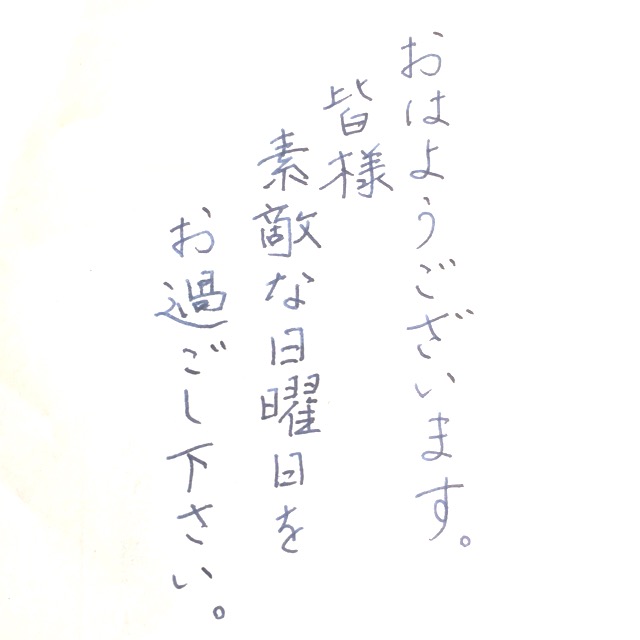 おはようございます。
皆様
素敵な日曜日を
お過ごし下さい。